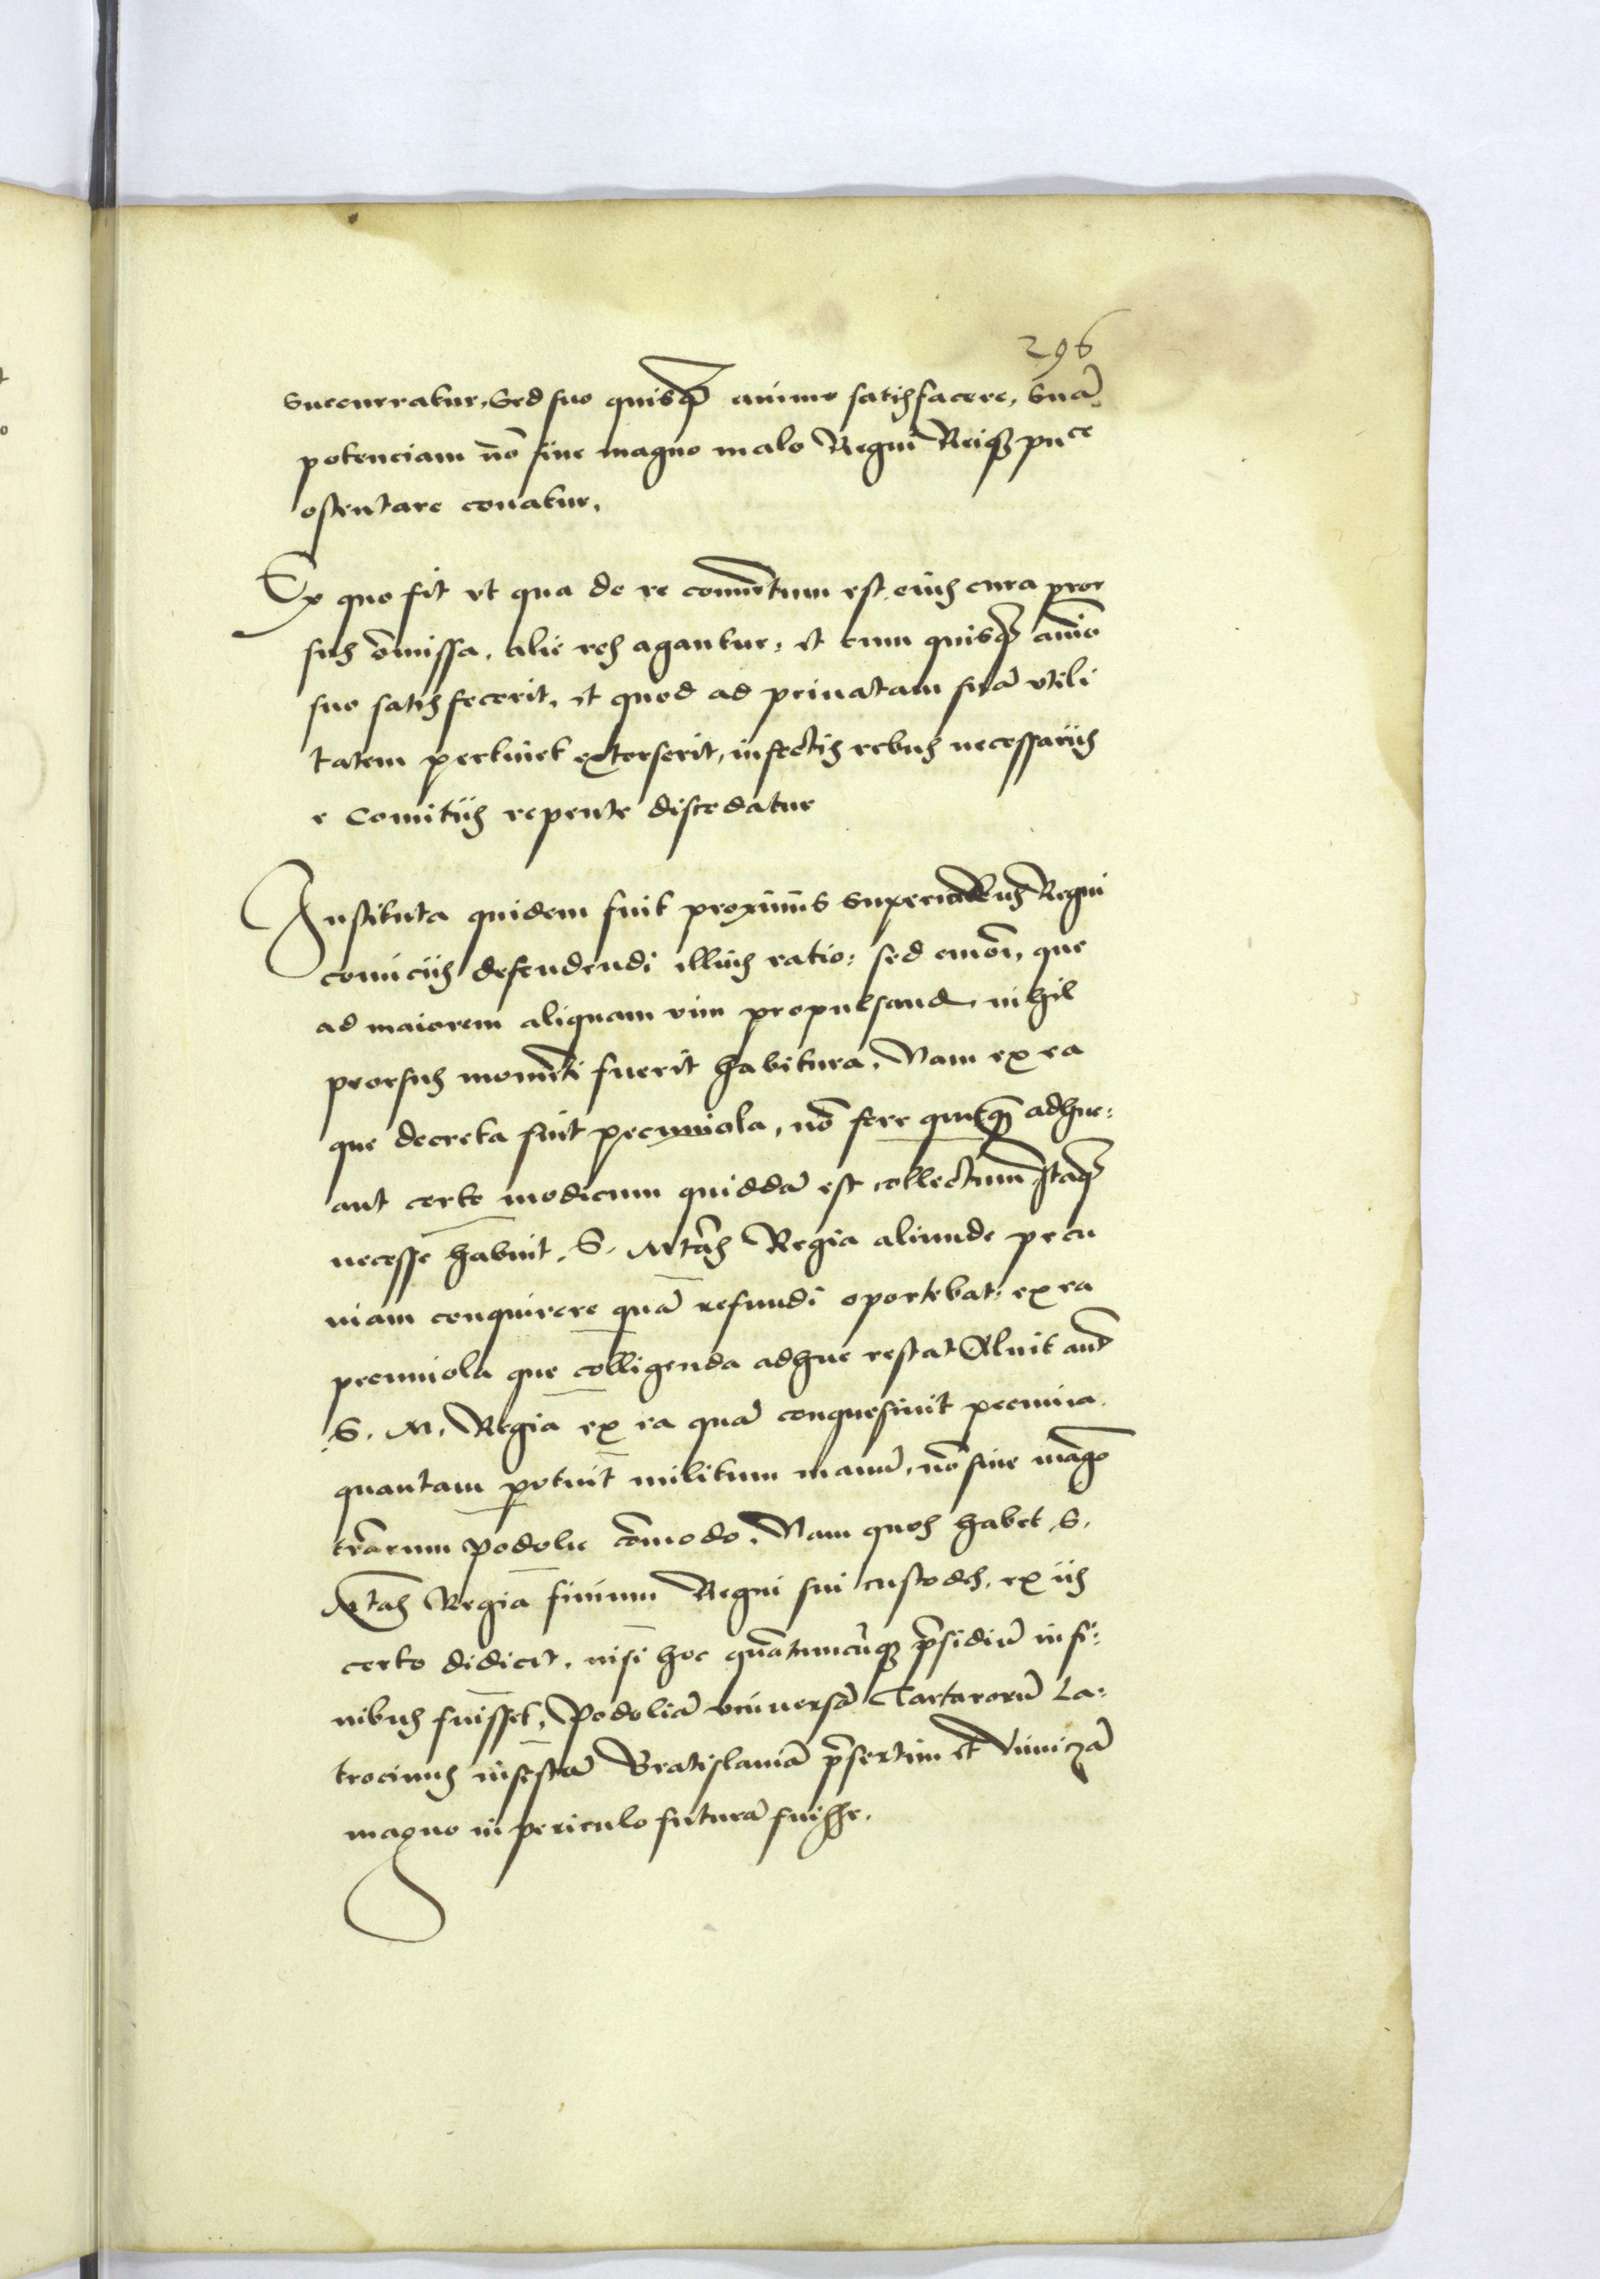 296
succurratur, Sed suo quisq̃ animo satisfacere, Suā
potenciam nō sine magno malo Regni Reiqȝ pu^ce
ostentare conatur,
Ex quo fit ut qua de re conuētum est eius cura pror
sus ōmissa, alie res agantur, et cum quisq̃ aīo
suo satisfecerit, et quod ad priuatam suā utili
tatem pertinet extorserit, infectis rebus necessariis
e Comitiis repente discedatur
Instituta quidem fuit proximis superioribus Regni
comiciis defendendi illius ratio: sed , que
ad maiorem aliquam uim propulsand nihil
prorsus momēti fuerit habitura, Nam ex ea
que decreta fuit pecuniola, nō fere quicq̃ adhuc:
aut certe modicum quiddā est collectum Itaq̃
necesse habuit, S. Mtās Regia aliunde pecu
niam conquirere quā refundi oportebat: ex ea
pecuniola que colligenda adhuc restat Aluit aūt
S. M. Regia ex ea quā conquesiuit pecunia
quantam potuit militum manū, nō sine magō
trārum Podolie cōmodo, Nam quos habet S.
Mtas Regia finium Regni sui custodes, ex iis
certo didicit, nisi hoc quātumcūqȝ p̄sidiū in fi:
nibus fuisset, Podoliā vniuersā Tartarorū La:
trociniis infestā Bratislauiā p̄sertim et Vinniczā
magno in periculo futurā fuisse.